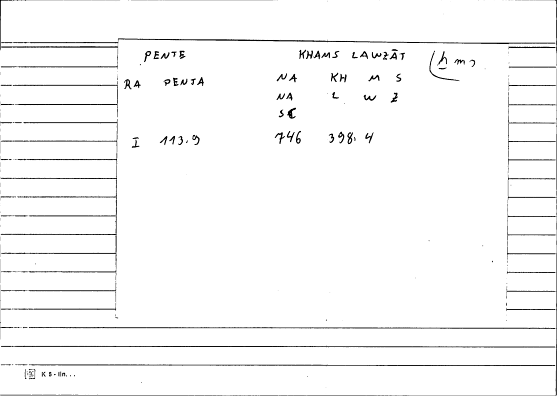 PENTE KHAMS LAWZĀT (ḫms
RA PENJA NA KH M S
NA L W Z
I 113.9 746 398.4
K 8 - lin...